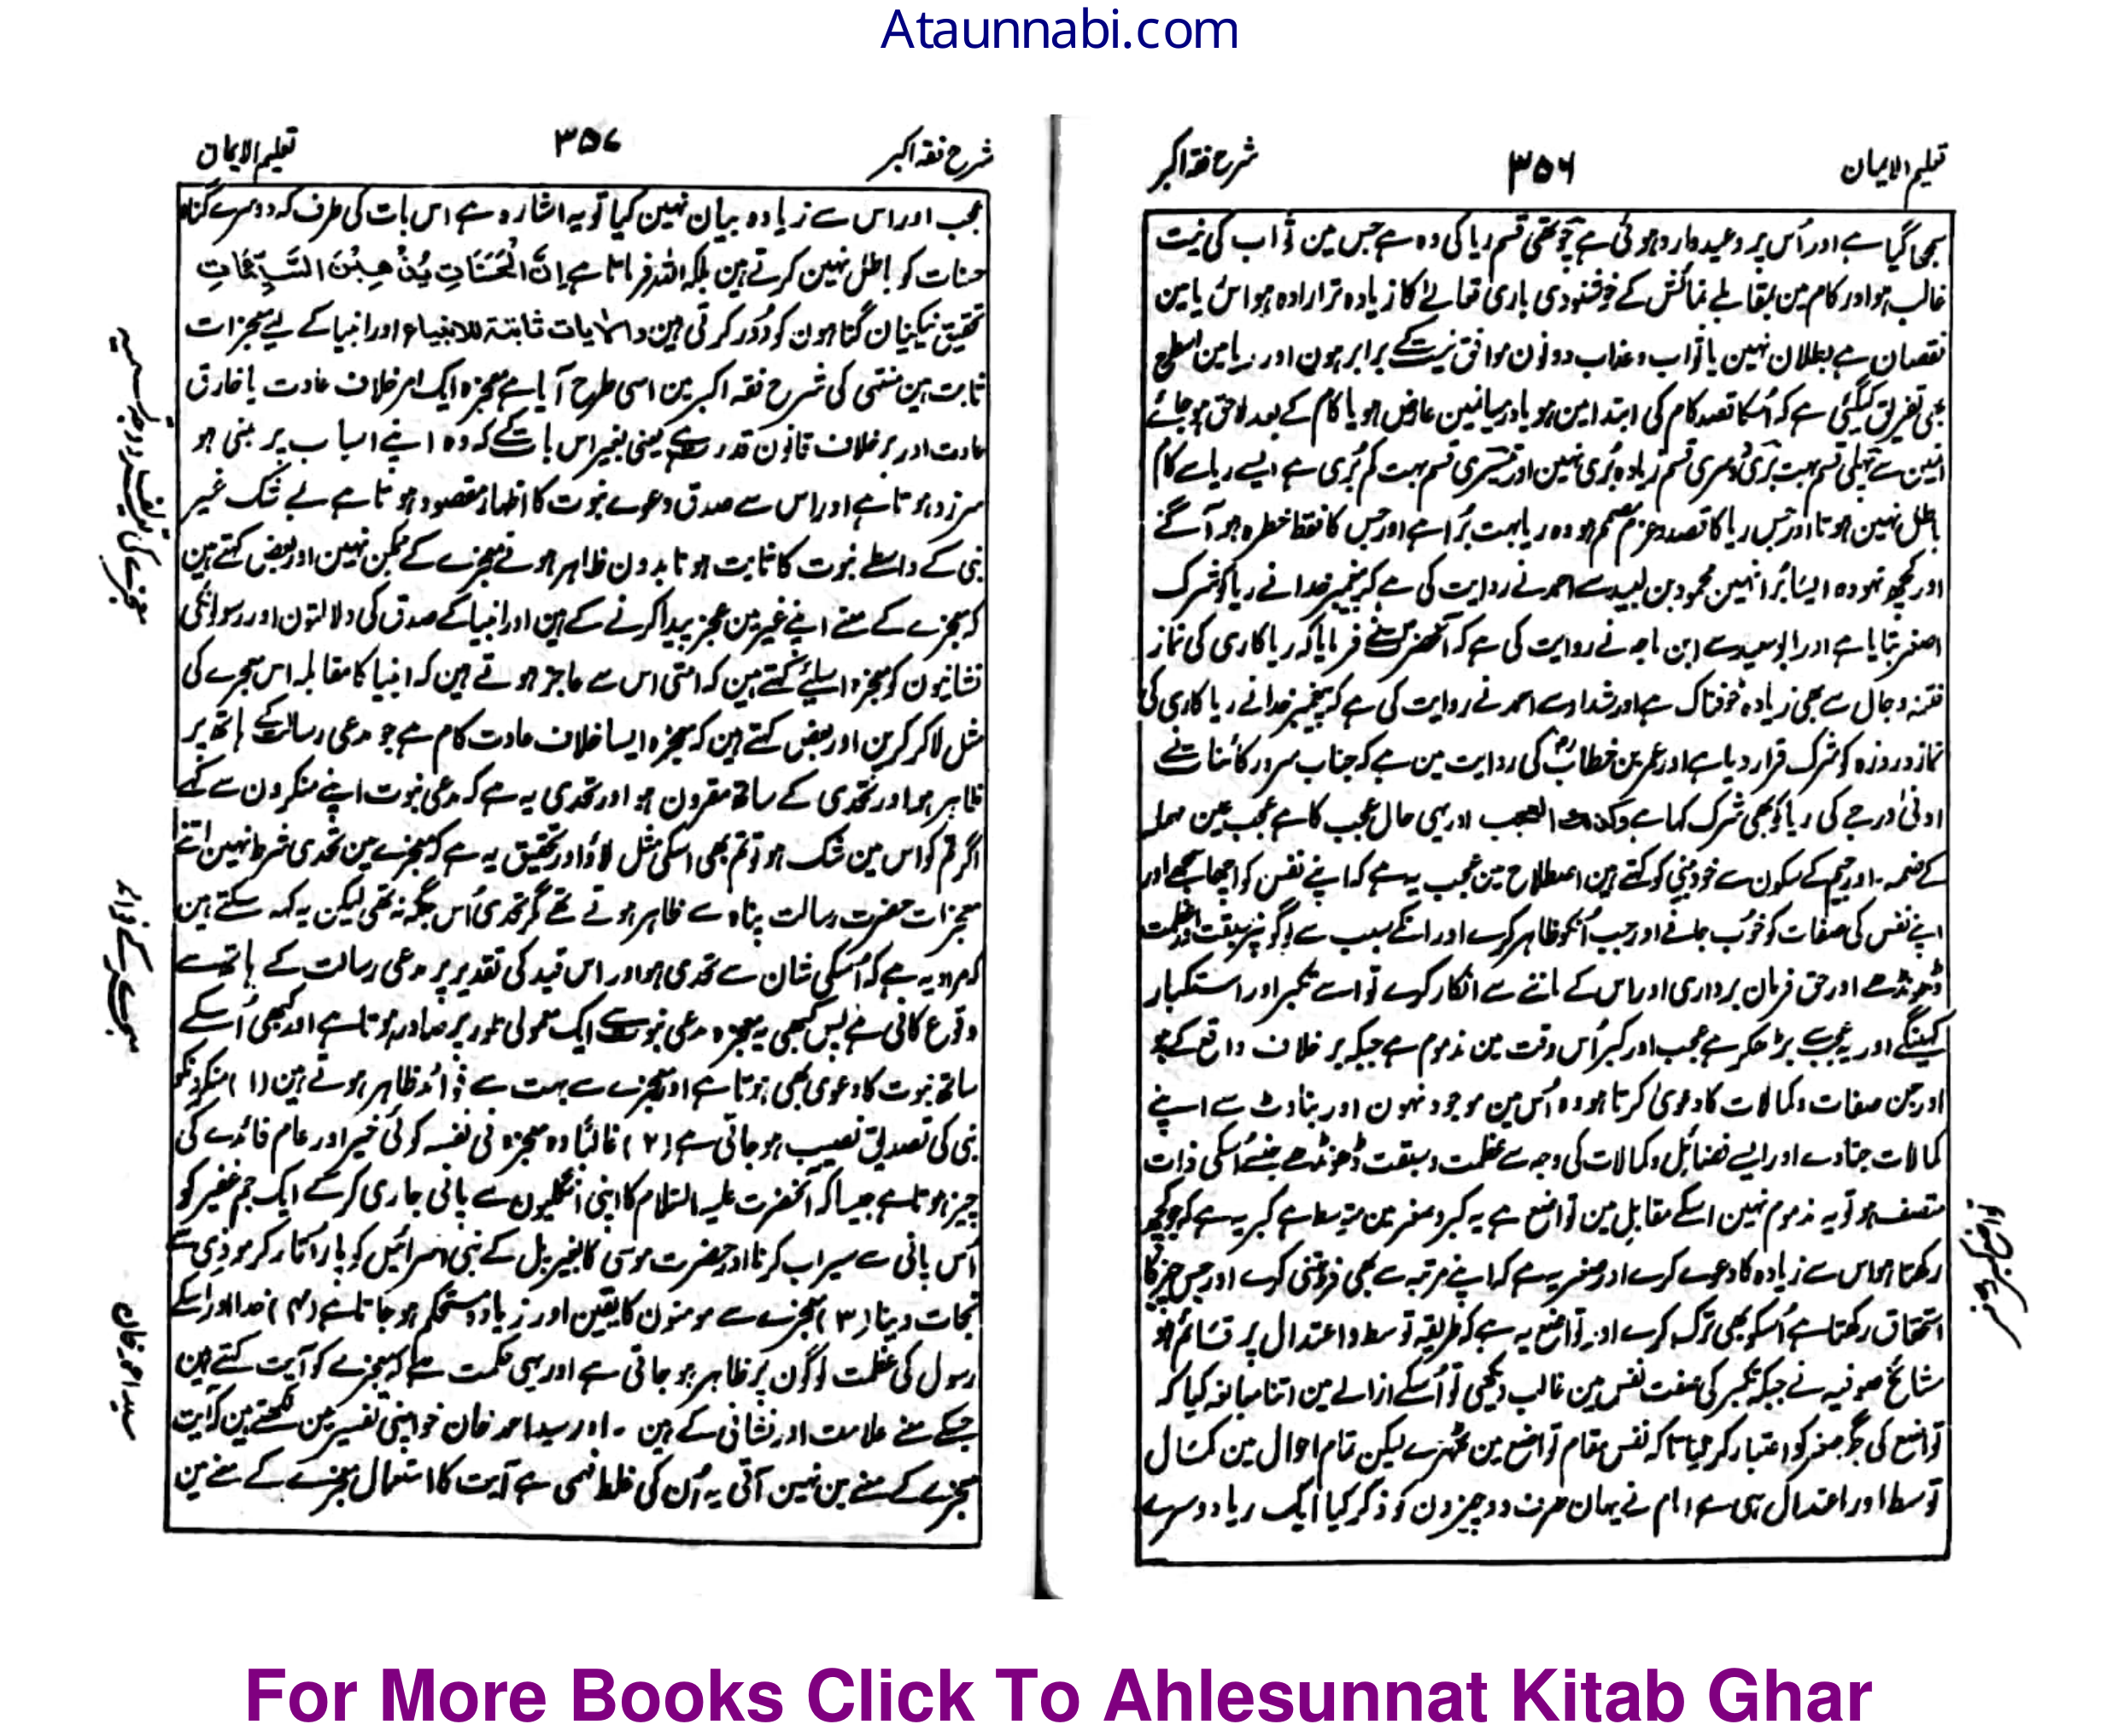 Ataunnabi.com
تعلیم الایمان
۳۵۶
شرح فقہ اکبر
سمجھا گیا ہے اور اُس پر وعید وارد ہوئی ہے چوتھی قسم ریا کی وہ ہے جس مین ثواب کی نیت
غالب ہو اور کام مین بمقابلے نمائش کے خوشنودی باری تعالےٰ کا زیادہ تر ارادہ ہو اس ریا مین
نقصان ہے بطلان نہین یا ثواب و عذاب دونون موافق نیت کے برابر ہون اور ریا مین اسطرح
بھی تفریق کیگئی ہے کہ اُسکا قصد کام کی ابتدا مین ہو یا درمیانمین عارض ہو یا کام کے بعد لاحق ہو جائے
انمین سے پہلی قسم بہت بُری دوسری قسم زیادہ بُری نہین اور تیسری قسم بہت کم بُری ہے ایسے ریا سے کام
باطل نہین ہوتا اور جس ریا کا قصد و عزم مصمم ہو وہ ریا بہت بُرا ہے اور جس کا فقط خطرہ ہو آگے
اور کچھ نہو وہ ایسا بُرا نہین محمود بن لبید سے احمد نے روایت کی ہے کہ پیغمبر خدا نے ریا کو شرک
اصغر بتایا ہے اور ابو سعید سے ابن ماجہ نے روایت کی ہے کہ آنحضرت نے فرمایا کہ ریا کاری کی نماز
فتنہ دجال سے بھی زیادہ خوفناک ہے اور شداد سے احمد نے روایت کی ہے کہ پیغمبر خدا نے ریا کاری کی
نماز و روزہ کو شرک قرار دیا ہے اور عمر بن خطابؓ کی روایت مین ہے کہ جناب سرور کائنات نے
ادنیٰ درجے کی ریا کو بھی شرک کہا ہے وکذا العجب اور یہی حال عجب کا ہے عجب عین مہملہ
کے ضمہ اور جیم کے سکون سے خود بینی کو کہتے ہین اصطلاح مین عجب یہ ہے کہ اپنے نفس کو اچھا سمجھے اور
اپنے نفس کی صفات کو خوب جانے اور جب اُنکو ظاہر کرے اور انکے سبب سے لوگونپر سبقت اور عظمت
ڈھونڈھے اور حق فرمان برداری اور اس کے ماننے سے انکار کرے تو اسے تکبر اور استکبار
کہینگے اور یہ عجب سے بڑھکر ہے عجب اور کبر اُس وقت مین مذموم ہے جبکہ بر خلاف واقع کے ہو
اور جن صفات و کمالات کا دعویٰ کرتا ہو وہ اُس مین موجود نہون اور بناوٹ سے اپنے
کمالات جتاوے اور ایسے فضائل و کمالات کی وجہ سے عظمت و سبقت ڈھونڈھے جنسے اُسکی ذات
متصف ہو تو یہ مذموم نہین اسکے مقابل مین تواضع ہے یہ کبر و صغر مین متوسط ہے کبر یہ ہے کہ جو کچھ
رکھتا ہو اس سے زیادہ کا دعوے کرے اور صغر یہ ہے کہ اپنے مرتبہ سے بھی فروتنی کرے اور جس چیز کا
استحقاق رکھتا ہے اُسکو بھی ترک کرے اور تواضع یہ ہے کہ طریقہ توسط و اعتدال پر قائم ہو
مشائخ صوفیہ نے جبکہ تکبر کی صفت نفس مین غالب دیکھی تو اُسکے ازالے مین اتنا مبالغہ کیا کہ
تواضع کی جگہ صغر کو اعتبار کر لیا تا کہ نفس مقام تواضع مین ٹھہرے لیکن تمام احوال مین کمال
توسط اور اعتدال ہی ہے امام نے یہان صرف دو چیزون کو ذکر کیا ایک ریا دوسرے
شرح فقہ اکبر
۳۵۷
تعلیم الایمان
عجب اور اس سے زیادہ بیان نہین کیا تو یہ اشارہ ہے اس بات کی طرف کہ دوسرے گناہ
حسنات کو باطل نہین کرتے ہین بلکہ اللہ فرماتا ہے اِنَّ الْحَسَنَاتِ یُذْهِبْنَ السَّیِّئَاتِ
تحقیق نیکیان گناہون کو دُور کرتی ہین والآیات ثابتۃ للانبیاء اور انبیا کے لیے معجزات
ثابت ہین منتقی کی شرح فقہ اکبر مین اسی طرح آیا ہے معجزہ ایک امر خلاف عادت یا خارق
عادت اور بر خلاف قانون قدرت ہے یعنی بغیر اس بات کے کہ وہ اپنے اسباب پر مبنی ہو
سرزد ہوتا ہے اور اس سے صدق دعوے نبوت کا اظہار مقصود ہوتا ہے بے شک غیر
نبی کے واسطے نبوت کا ثابت ہونا بدون ظاہر ہونے معجزے کے ممکن نہین اور بعض کہتے ہین
کہ معجزے کے معنے اپنے غیر مین عجز پیدا کرنے کے ہین اور انبیا کے صدق کی دلالتون اور رسولونکی
نشانیون کو معجزہ اسلیئے کہتے ہین کہ امتی اس سے عاجز ہوتے ہین کہ انبیا کا مقابلہ اس معجزے کی
مثل لاکر کرین اور بعض کہتے ہین کہ معجزہ ایسا خلاف عادت کام ہے جو مدعی رسالت کے ہاتھ پر
ظاہر ہو اور تحدی کے ساتھ مقرون ہو اور تحدی یہ ہے کہ مدعی نبوت اپنے منکرون سے کہے
اگر تم کو اس مین شک ہو تو تم بھی اسکی مثل لاؤ اور تحقیق یہ ہے کہ معجزے مین تحدی شرط نہین اتنے
معجزات حضرت رسالت پناہ سے ظاہر ہوتے تھے مگر تحدی اُس جگہ نہ تھی لیکن یہ کہہ سکتے ہین
کہ مراد یہ ہے کہ اُسکی شان سے تحدی ہو اور اس قید کی تقدیر پر مدعی رسالت کے ہاتھ سے
وقوع کافی ہے پس کبھی یہ معجزہ مدعی نبوت سے ایک معمولی طور پر صادر ہوتا ہے اور کبھی اُسکے
ساتھ نبوت کا دعویٰ بھی ہوتا ہے اور معجزے سے بہت سے فوائد ظاہر ہوتے ہین (۱) منکرونکو
نبی کی تصدیق نصیب ہو جاتی ہے (۲) غالباً وہ معجزہ فی نفسہ کوئی خیر اور عام فائدے کی
چیز ہوتا ہے جیسا کہ آنحضرت علیہ السلام کا اپنی انگلیون سے پانی جاری کر کے ایک جم غفیر کو
اُس پانی سے سیراب کرنا اور حضرت موسیٰ کا بغیر پل کے بنی اسرائیل کو پار اُتار کر موذی سے
نجات دینا (۳) معجزے سے مومنون کا یقین اور زیادہ مستحکم ہو جاتا ہے (۴) خدا اور اسکے
رسول کی عظمت لوگون پر ظاہر ہو جاتی ہے اور یہی حکمت ہے کہ معجزے کو آیت کہتے ہین
جسکے معنے علامت اور نشانی کے ہین ۔ اور سید احمد خان خود اپنی تفسیر مین لکھتے ہین کہ آیت
معجزے کے معنے مین نہین آتی یہ اُن کی غلط فہمی ہے آیت کا استعمال معجزے کے معنے مین
معجزے کے فوائد
سید احمد خان
For More Books Click To Ahlesunnat Kitab Ghar